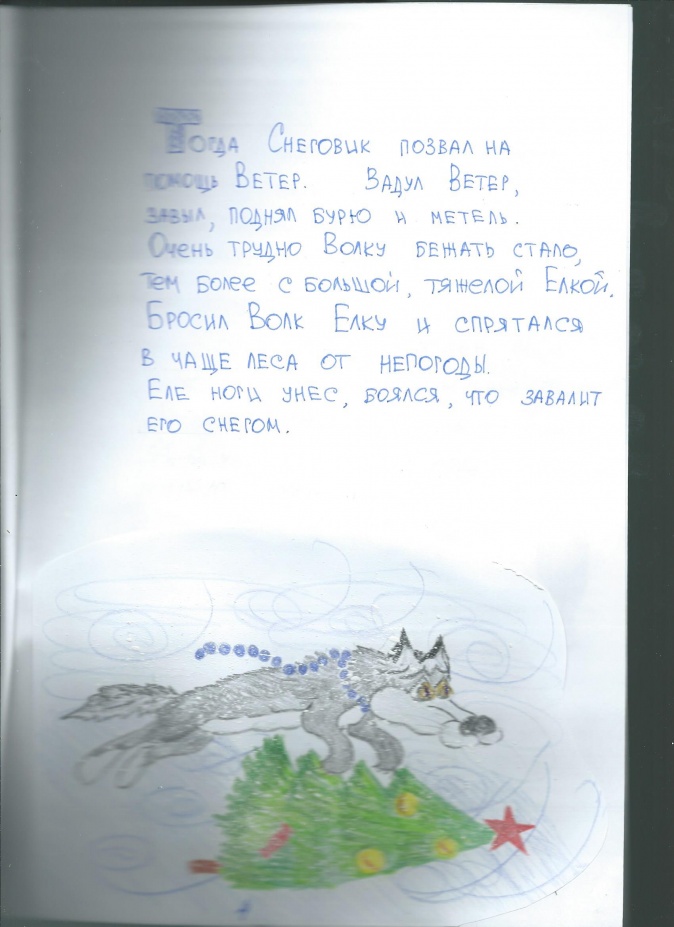 Тогда Снеговик позвал на
помощь Ветер. Задул Ветер,
завыл, поднял бурю и метель.
Очень трудно Волку бежать стало,
тем более с большой, тяжелой Елкой.
Бросил Волк Елку и спрятался
в чаще леса от непогоды.
Еле ноги унес, боялся, что завалит
его снегом.